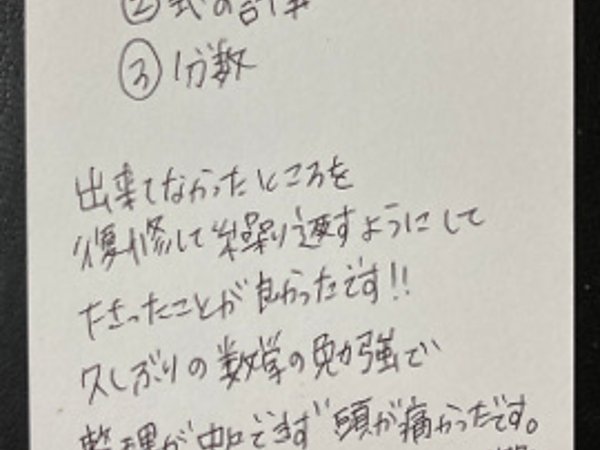 ②式の計算
③分数
出来てなかったところを
復修して繰り返すようにして
たさったことが良かったです!!
久しぶりの数学の勉強で
整理が中々できず頭が痛かったです。